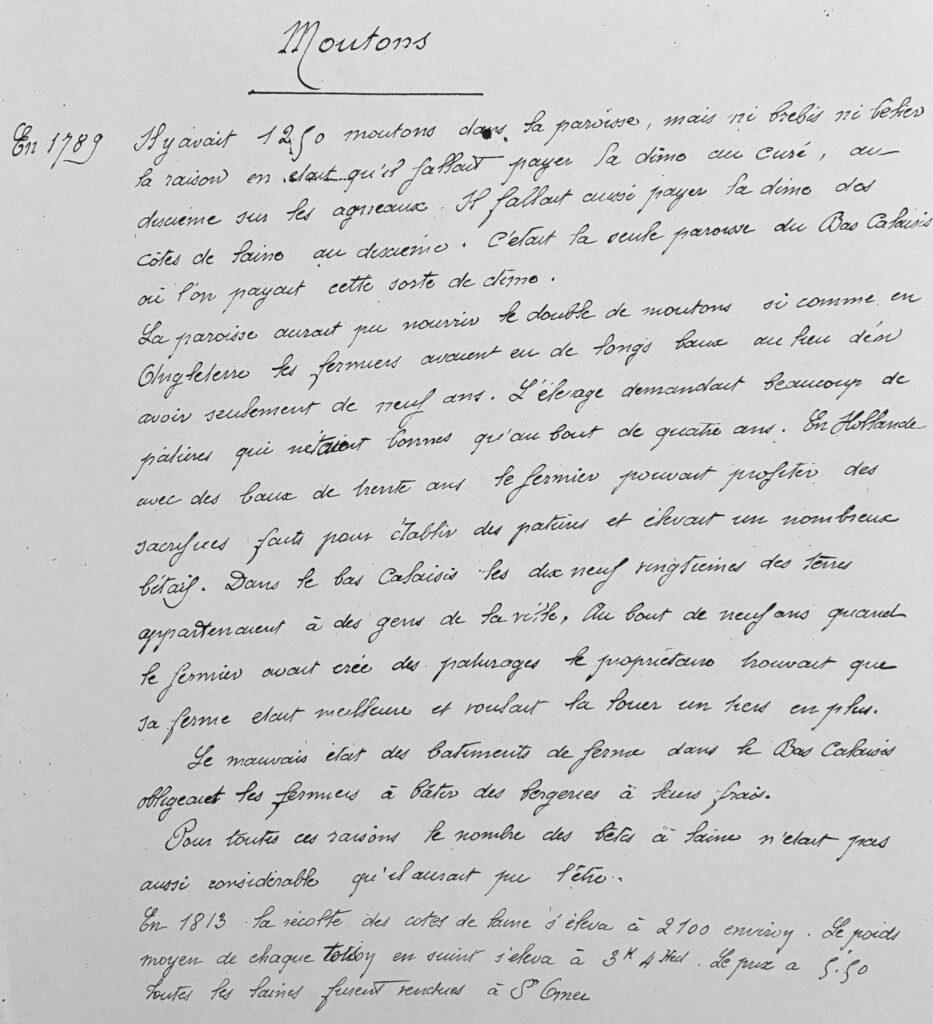 Moutons
En 1789 Il y avait 1250 moutons dans la paroisse, mais ni brebis ni bélier
la raison en etait qu'il fallait payer la dime au curé, au
dixième sur les agneaux. Il fallait aussi payer la dime des
côtes de laine au dixième. C'était la seule paroisse du Bas Calaisis
où l'on payait cette sorte de dime.
La paroisse aurait pu nourrir le double de moutons si comme en
Angleterre les fermiers avaient eu de longs baux au lieu d'en
avoir seulement de neuf ans. L'élevage demandait beaucoup de
patures qui n'étaient bonnes qu'au bout de quatre ans. En Hollande
avec des baux de trente ans le fermier pouvait profiter des
sacrifices faits pour établir des patures et élevait un nombreux
bétail. Dans le bas Calaisis les dix neuf vingtièmes des terres
appartenaient à des gens de la ville. Au bout de neuf ans quand
le fermier avait créé des paturages le propriétaire trouvait que
sa ferme etait meilleure et voulait la louer un tiers en plus.
Le mauvais état des batiments de ferme dans le Bas Calaisis
obligeait les fermiers à bâtir des bergeries à leurs frais.
Pour toutes ces raisons le nombre des bêtes à laine n'était pas
aussi considérable qu'il aurait pu l'être.
En 1813 la récolte des cotes de laine s'éleva à 2100 environ. Le poids
moyen de chaque toison en suint s'éleva à 3K 4 Hect. Le prix a 5.50
toutes les laines furent vendues à St Omer